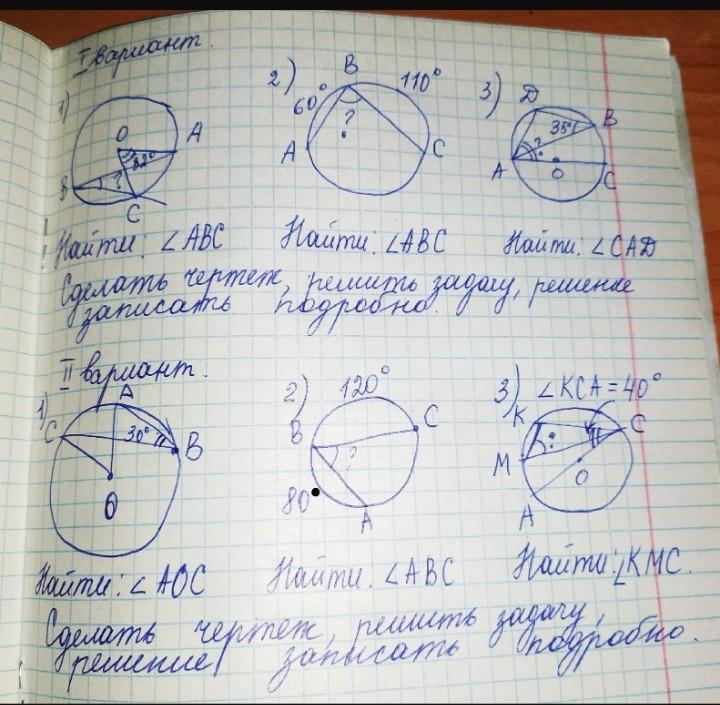 I вариант.
1) O A 82° B ? C
2) B 110° 60° ? A C
3) D B 35° ? A O C
Найти: ∠ABC Найти: ∠ABC Найти. ∠CAD
Сделать чертеж, решить задачу, решение
записать подробно.
II вариант.
1) A C 30° B O
2) 120° C B ? 80 A
3) ∠KCA = 40° K C M ? O A
Найти: ∠AOC Найти. ∠ABC Найти: ∠KMC.
Сделать чертеж, решить задачу,
решение записать подробно.